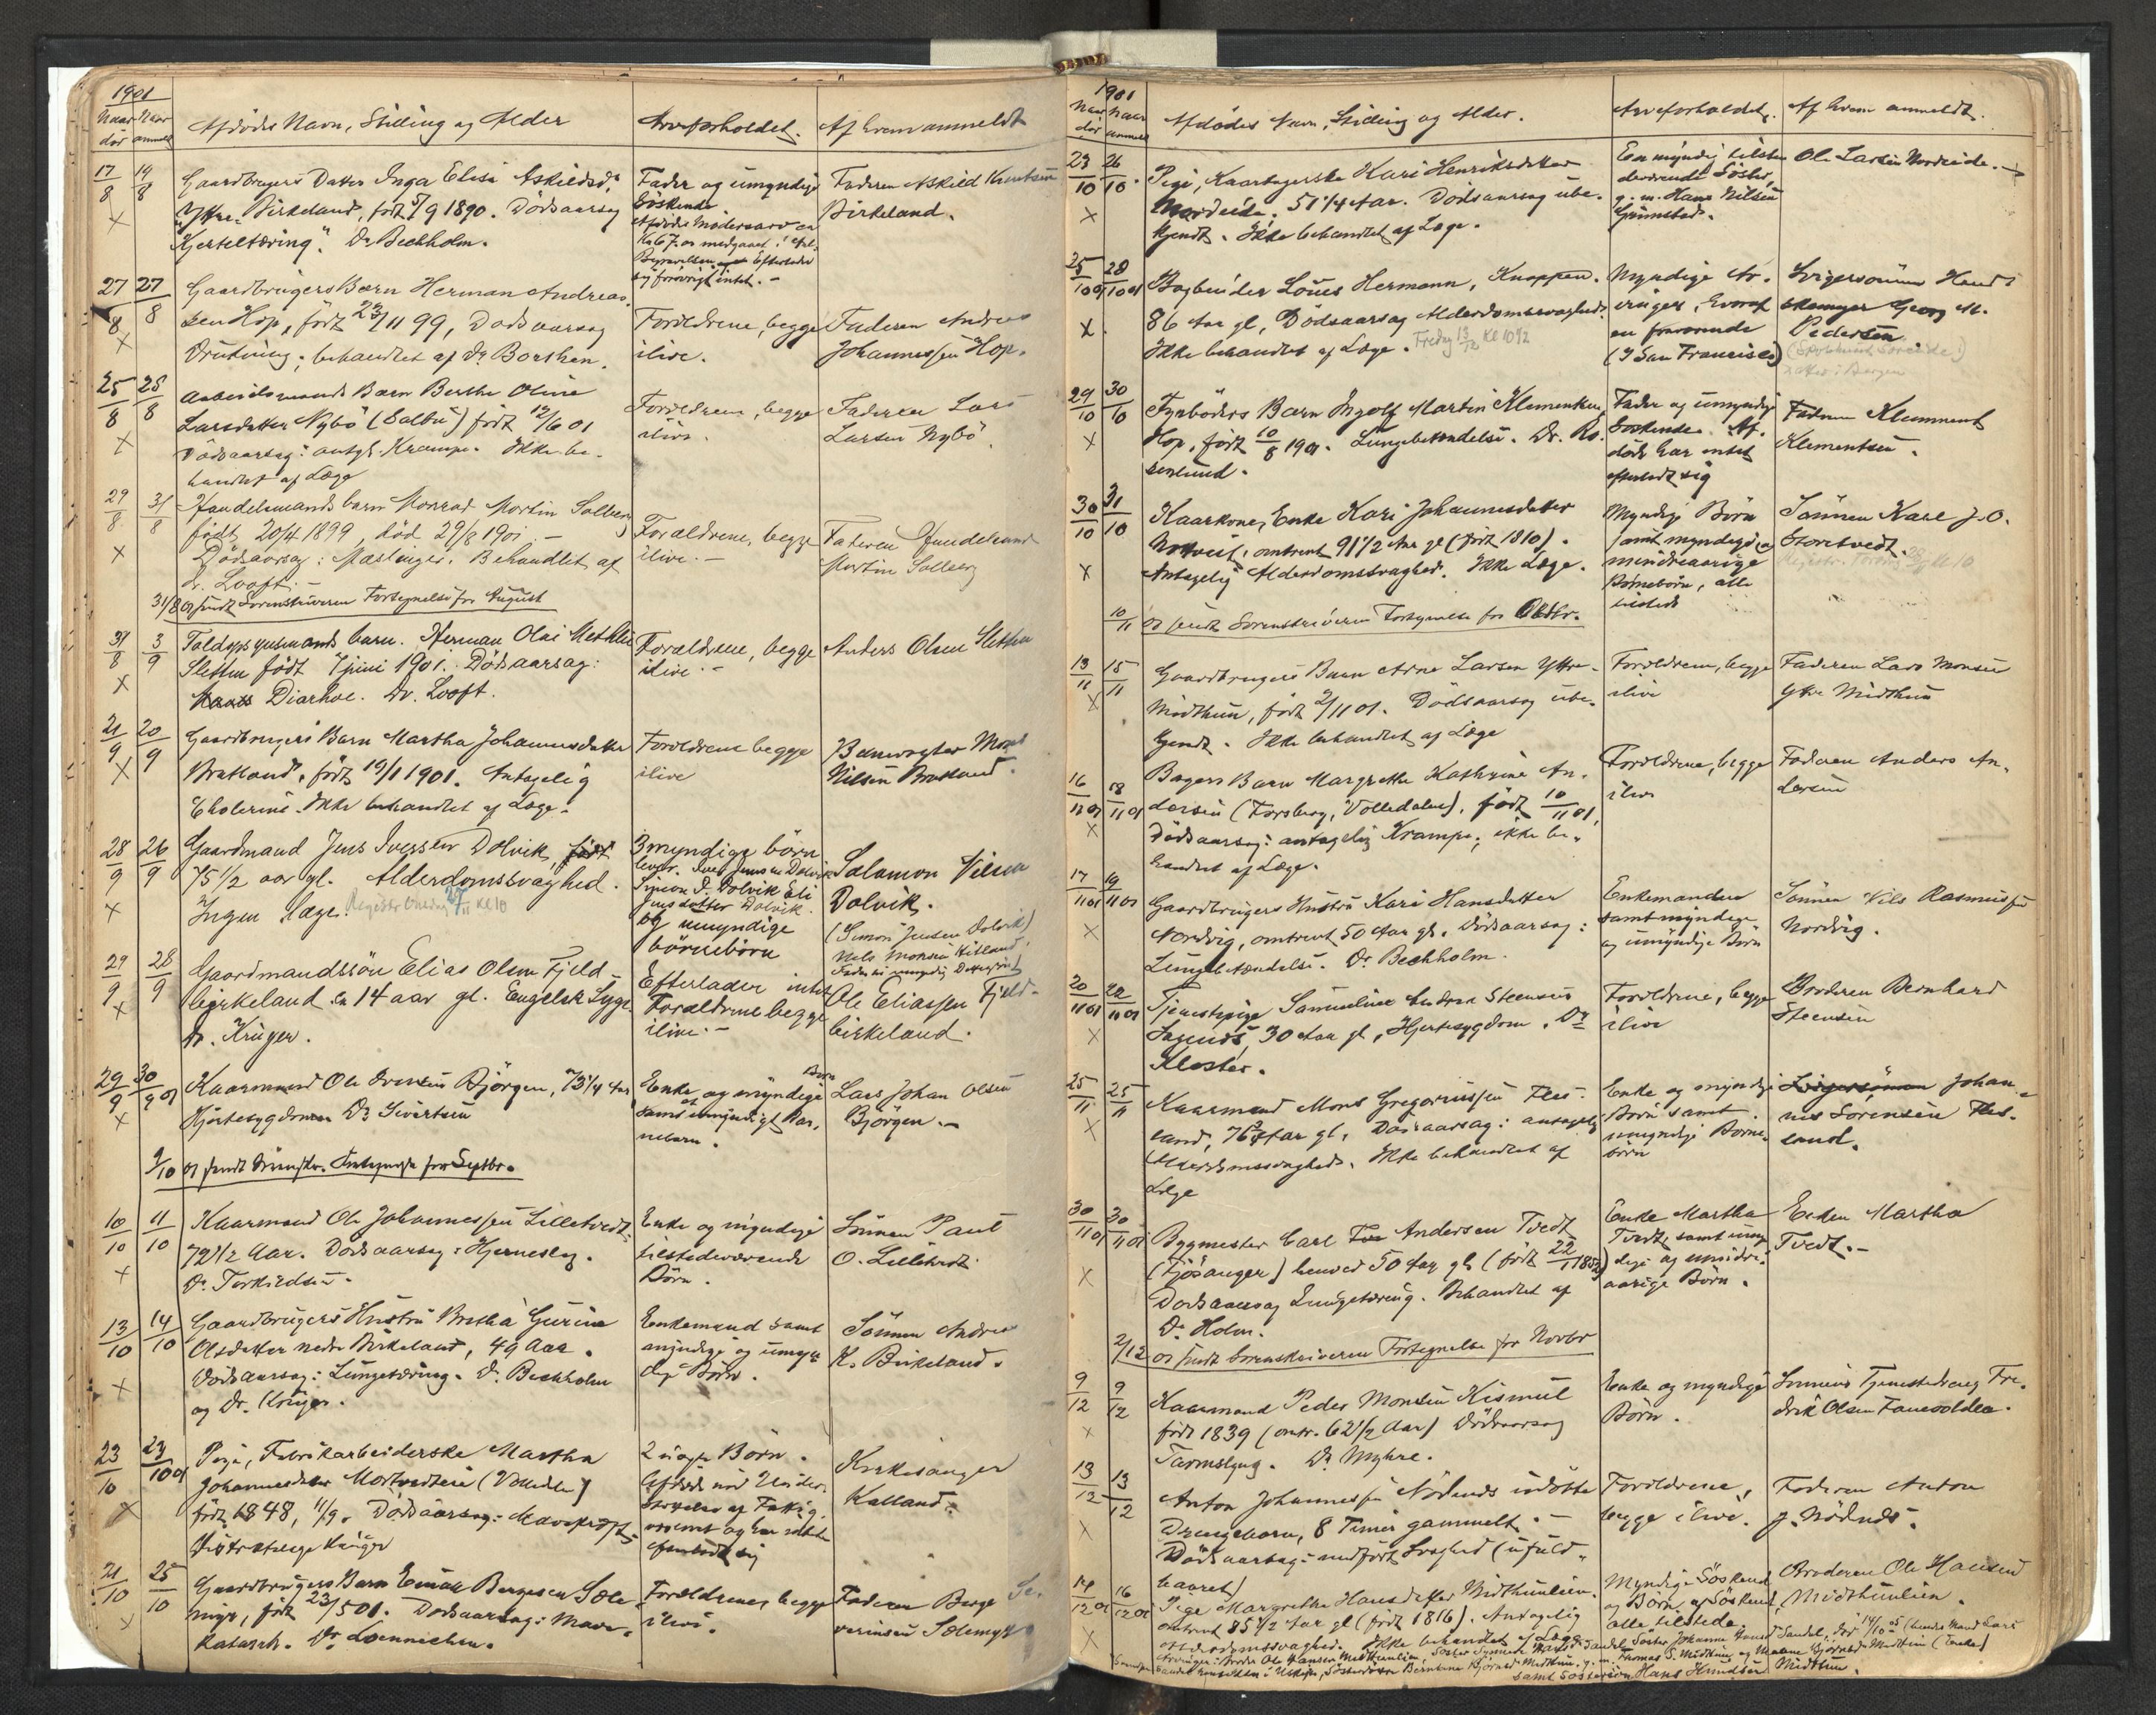 1901
Naar Naar
dør anmeldt
Afdødes Navn, Stilling og Alder
Arveforholdet.
Af hvem anmeldt
17/8 19/8
Gaardbrugers Datter Inga Elise Askildsd.
Ytre Birkeland, født 5/9 1890. Dødsaarsag
"Kjerteltæring". Dr Bechholm.
Fader og umyndige
Søskende
Faderen Askild Knutsen
Birkeland.
27/8 27/8
Gaardbrugers Barn Herman Andreas-
sen Hop, født 23/11 99, Dødsaarsag
Drutning; behandlet af Dr Borthen.
Forældrene, begge
ilive.
Faderen Andreas
Johannessen Hop.
25/8 28/8
Arbeidsmands Barn Berthe Oline
Larsdatter Nybø (Salbu) født 12/6 01
Dødsaarsag: antgl. Krampe. Ikke be-
handlet af Læge
Forældrene, begge
ilive.
Faderen Lars
Larsen Nybø.
29/8 31/8
Handelsmands barn Monrad Martin Solberg
født 20/4 1899, død 29/8 1901.-
Dødsaarsag: Mæslinger. Behandlet af
dr. Looft.-
Forældrene, begge
ilive.-
Faderen Handelsmand
Martin Solberg
31/8 01 sendt Sorenskriveren Fortegnelse for August
31/8 3/9
barn. Herman Olai
Sletten født 7 juni 1901. Dødsaarsag:
Diarhoe. Dr. Looft.
Forældrene, begge
ilive.-
Anders Olsen Sletten
21/9 20/9
Gaardbrugers Barn Martha Johannesdatter
Bratland, født 19/1 1901. Antagelig
Cholerine. Ikke behandlet af Læge.
Forældrene begge
ilive
Banevogter Mons
Nilsen Bratland.
28/9 26/9
Gaardmand Jens Iversen Dolvik, født
75 1/2 aar gl. Alderdomssvaghed.
Ingen læge.
3 myndige børn
Simon J. Dolvik Eli
Jensdatter Dolvik.
og umyndige
børnebørn
Salamon Nilsen
Dolvik.
(Simon Jensen Dolvik)
Nils Monsen
29/9 28/9
Gaardmandssøn Elias Olsen Fjeld-
birkeland 14 aar gl. Engelsk Syge.
Dr. Krüger.
Efterlader intet
Forældrene begge
ilive.-
Ole Eliassen Fjeld-
birkeland.
29/9 30/9 01
Kaarmand Ole Bjørgen, 73 1/4 Aar
Hjertesygdom Dr Sivertsen
Enke og myndige Børn
samt et umyndigt Bar-
nebarn.
Lars Johan Olsen
Bjørgen.-
9/10 01 sendt Fortegnelse for Septbr.
10/10 11/10
Kaarmand Ole Johannessen Lilletvedt,
72 1/2 Aar. Dødsaarsag: Hjerneslag.
Dr. Torkildsen.
Enke og myndige
tilstedeværende
Børn.
Sønnen Paul
O. Lilletvedt
13/10 14/10
Gaardbrugers Hustru Brithe Gurine
Olsdatter nedre Birkeland, 49 Aar.
Dødsaarsag: Lungetæring. Dr. Bechholm
og Dr. Krüger.
Enkemand samt
myndige og umyn-
dige Børn.
Sønnen Andreas
K. Birkeland.
23/10 23/10 01
Pige, Fabrikarbeiderske Martha
Johannesdatter
født 1848, 11/9. Dødsaarsag: Mavekræft.
Distriktslæge Krüger
2 uægte Børn.
Afdøde nød Under-
støttelse af Fattig-
væsenet og har intet
efterladt sig
Kirkesanger
Kalland.
21/10 25/10
Gaardbrugers Barn Bergesen Søle-
myr, født 23/5 01. Dødsaarsag: Mave-
katarrh. Dr. Loennechen.
Forældrene, begge
ilive.
Faderen Berge Se-
verinsen Sølemyr
1901
Naar Naar
dør anmeldt
Afdødes Navn, Stilling og Alder.
Arveforholdet.
Af hvem anmeldt.
23/10 26/10
Pige, Kaartagerske Kari Henriksdatter
Nordeide. 51 1/4 Aar. Dødsaarsag ube-
kjendt. Ikke behandlet af Læge.
En myndig tilste-
deværende Søster,
g. m. Hans Nilsen
Grimstad.
Ole Larsen Nordeide.
25/10 01 28/10 01
Bogbinder Louis Hermann, Knappen.
86 Aar gl, Dødsaarsag Alderdomssvaghed.
Ikke behandlet af Læge.
Myndige Ar-
vinger, hvoraf
en fraværende
(I San Francisco)
Svigersønnen Hand-
skemager Georg M.
Pedersen
29/10 30/10
Fyrbøders Barn Ingolf Martin Klementsen
Hop, født 10/8 1901. Lungebetændelse. Dr. Ro-
senlund.
Fader og umyndige
Søskende. Af-
døde har intet
efterladt sig
Faderen Klemment
Klementsen.
30/10 31/10
Kaarkone, Enke Kari Johannesdatter
omtrent 91 1/2 Aar gl (født 1810).
Antagelig Alderdomssvaghed. Ikke Læge.
Myndige Børn
samt myndige og
mindreaarige
Børnebørn, alle
tilstede
Sønnen Karl J. O.
Storetvedt.
10/11 01 sendt Sorenskriveren Fortegnelse for Oktbr.
13/11 15/11
Gaardbrugers Barn Arne Larsen Ytre-
Midthun, født 2/11 01. Dødsaarsag ube-
kjendt. Ikke behandlet af Læge
Forældrene, begge
ilive
Faderen Lars Monsen
Ytre Midthun
16/11 01 18/11 01
Bagers Barn Margrethe Kathrine An-
dersen (Forsberg, Volledalen), født 10/11 01,
Dødsaarsag: antagelig Krampe; ikke be-
handlet af Læge.
Forældrene, begge
ilive
Faderen Anders An-
dersen
17/11 01 19/11 01
Gaardbrugers Hustru Kari Hansdatter
Nordvig, omtrent 50 Aar gl. Dødsaarsag:
Lungebetændelse. Dr. Bechholm.
Enkemanden
samt myndige
og umyndige Børn
Sønnen Nils Rasmussen
Nordvig.
20/11 01 22/11 01
Tjenestepige Samueline Andrea Steensen
30 Aar gl, Hjertesygdom. Dr
Kloster.
Forældrene, begge
ilive
Broderen Bernhard
Steensen
25/11 25/11
Kaarmand Mons Gregoriussen Fles-
land, 76 3/4 Aar gl. Dødsaarsag: antagelig
Alderdomssvaghed. Ikke behandlet af
Læge
Enke og myndige
Børn samt
umyndige Børne-
børn
Svigersønnen Johan-
nes Sørensen Fles-
land.
30/11 01 30/11 01
Bygmester Carl Andersen Tvedt
(Fjøsanger) henved 50 Aar gl (født 22/1 1852)
Dødsaarsag Lungetæring. Behandlet af
Dr Holm.
Enke Martha
Tvedt, samt myn-
dige og mindre-
aarige Børn.
Enken Martha
Tvedt.-
2/12 01 sendt Sorenskriveren Fortegnelse for Novbr
9/12 9/12
Kaarmand Peder Monsen Kismul
født 1839 (omtr. 62 1/2 Aar) Dødsaarsag
Tarmslyng. Dr Myhre.
Enke og myndige
Børn.
Sønnens Tjenestedreng Fre-
drik Olsen
13/12 13/12
Anton Johannessen Nødnes udøbte
Drengebarn, 8 Timer gammelt.-
Dødsaarsag: medfødt Svaghed (ufuld-
baaret)
Forældrene,
begge ilive.
Faderen Anton
J. Nødnes.
14/12 01 16/12 01
Pige Margrethe Hansdatter Midthunlien.
omtrent 85 1/2 Aar gl (født 1816). Antagelig
Alderdomssvaghed. Ikke behandlet af Læge
Myndige Søskende
og Børn af Søskende,
alle tilstede
Broderen Ole Hansen
Midthunlien.
Arvinger: Broder Ole Hansen Midthunlien, Søster
samt Søstersøn Hans Knudsen Midthun.